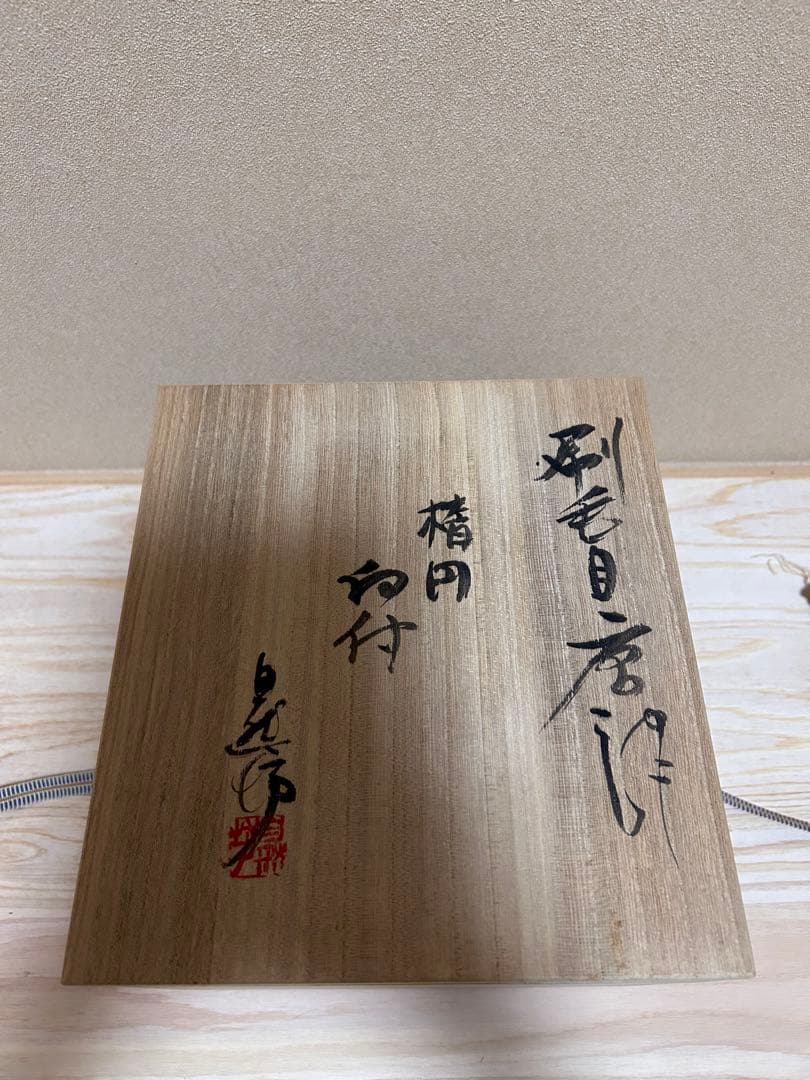 刷毛目唐津
楕円
向付